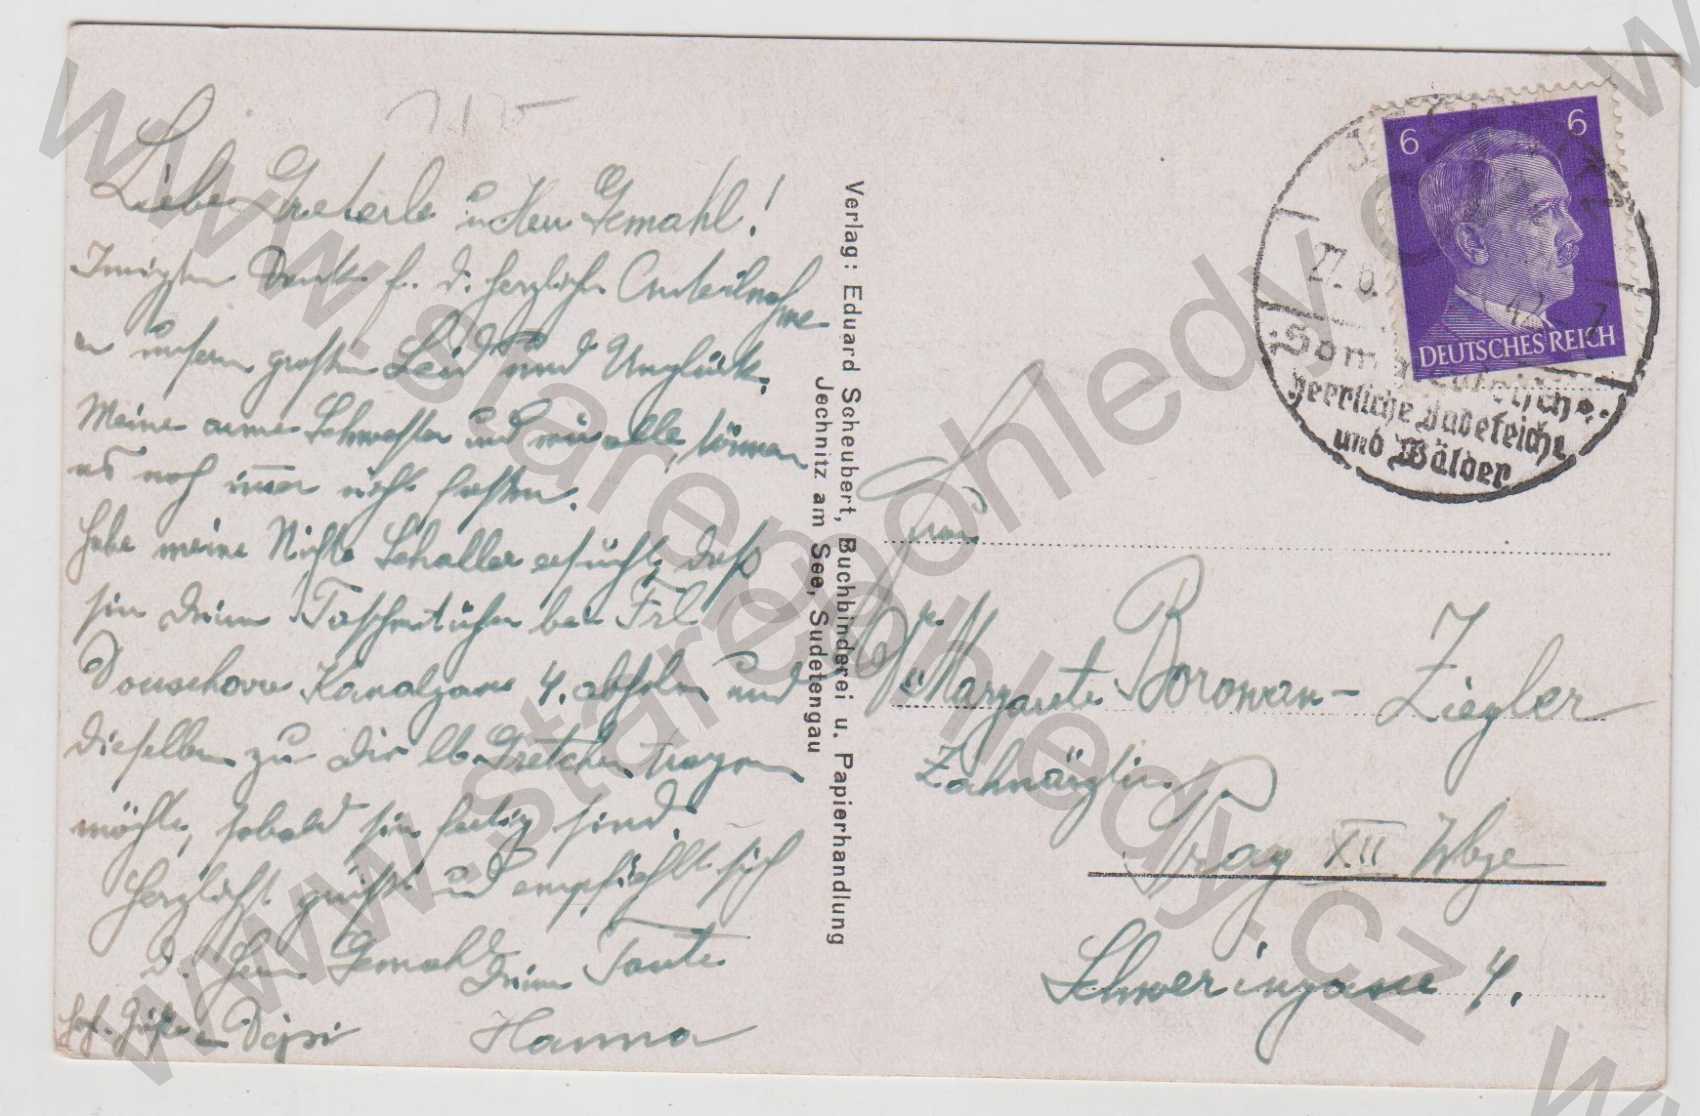 Liebe Greterle u. Herr Gemahl!
Innigsten Dank f. d. herzliche Anteilnahme
an unserm großen Leid und Unglück.
Meine arme Schwester und wir alle, können
es noch immer nicht fassen.
Habe meine Nichte Schaller ersucht, daß
sie deine Taschentücher bei Frl
Kanalgasse 4. abholen und
dieselben zu dir lb. Gretchen tragen
möchte, sobald sie fertig sind.
Herzlichst grüßt und empfiehlt sich
d. Herrn Gemahl
deine Tante
Hanna
Verlag: Eduard Scheubert, Buchbinderei u. Papierhandlung
Jechnitz am See, Sudetengau
6 6
DEUTSCHES REICH
27. 42
Sommerfrische.
Herrliche Badeteiche
und Wälder
Frau
Dr. Margarete Borowan-Ziegler
Zahnärztin
Prag XII Wbge
Schweringasse 4.
www.starepohledy.cz
www.starepohledy.cz